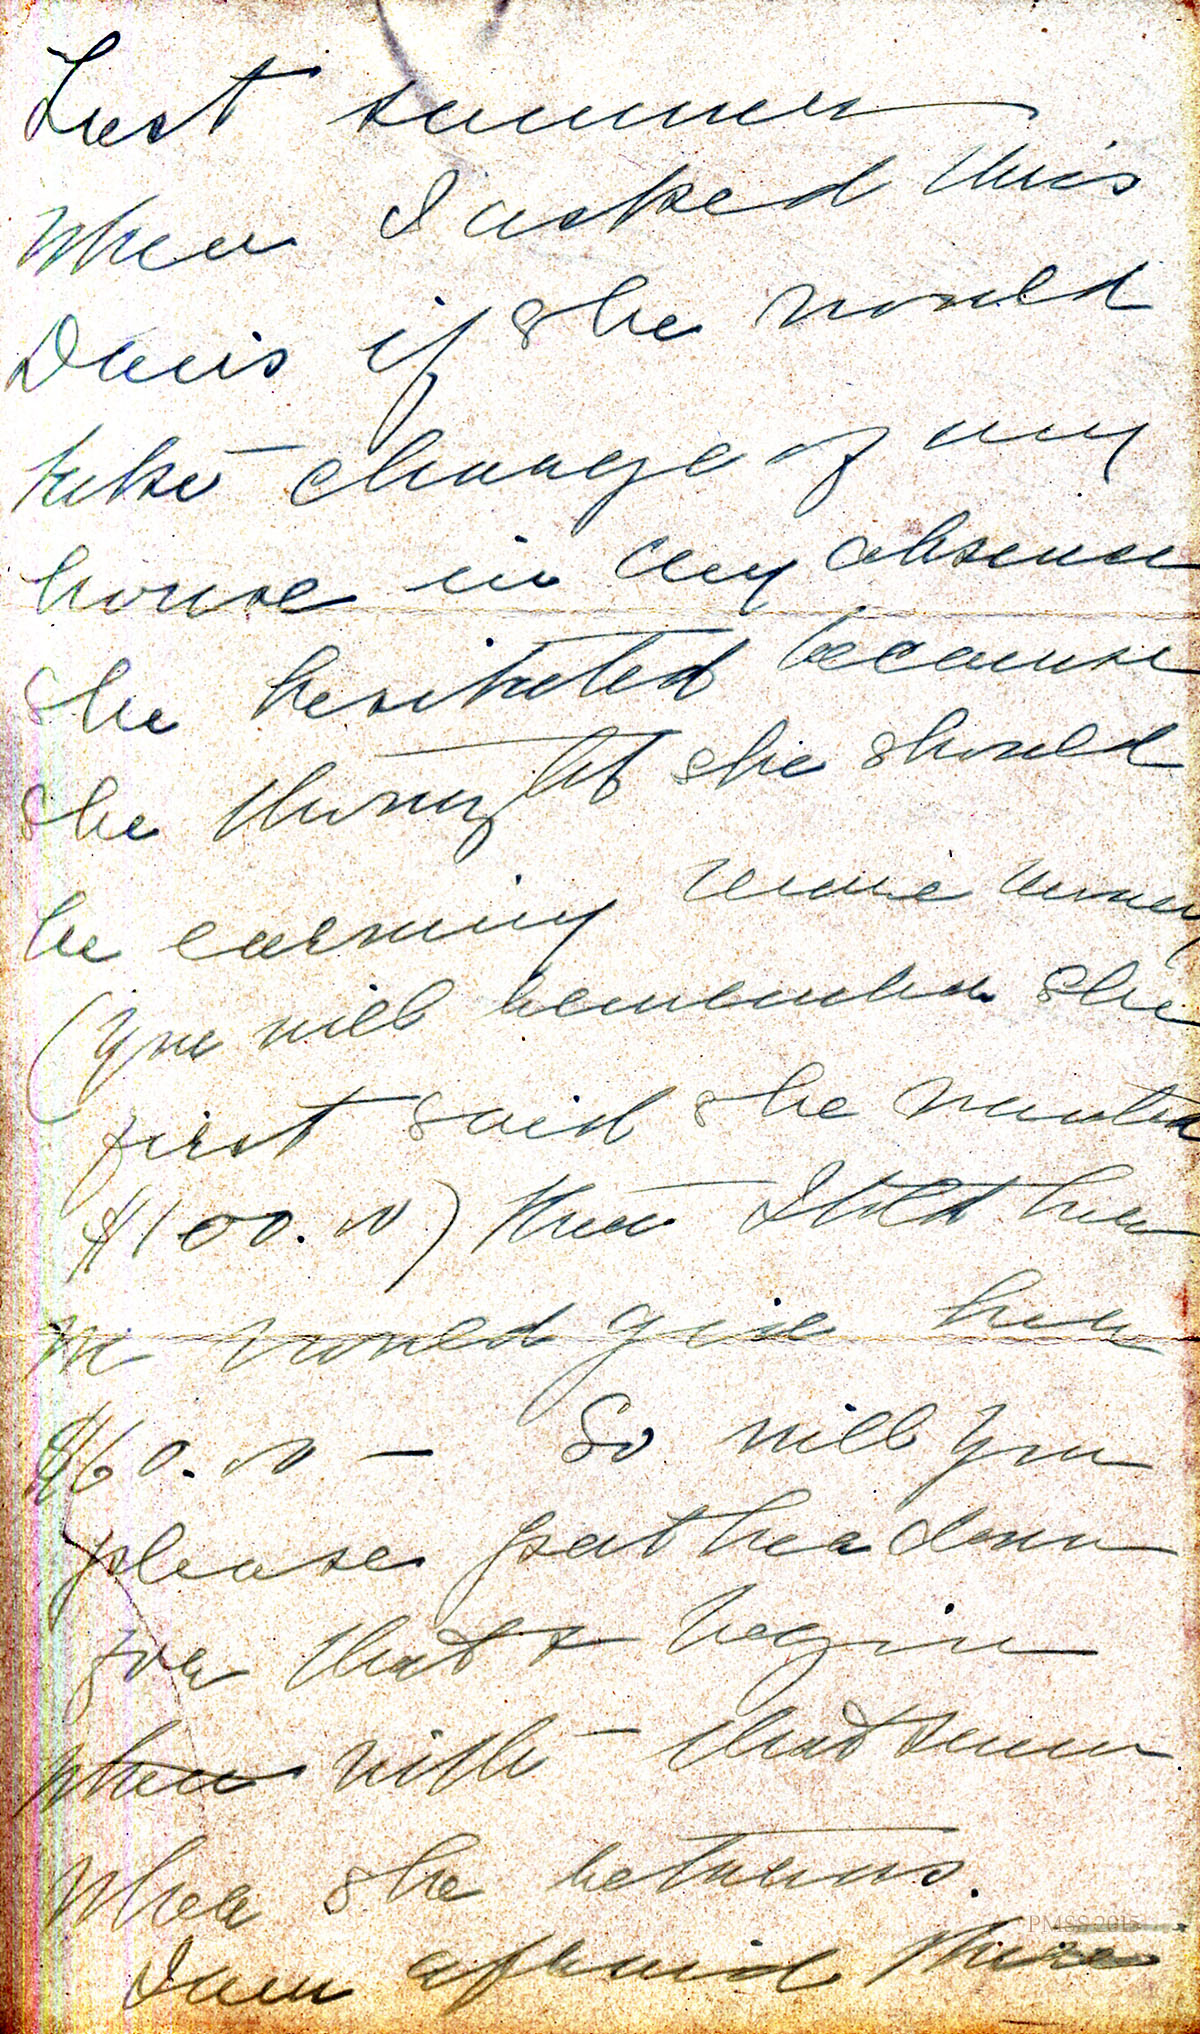 Last summer
when I asked Miss
Davis if she would
take charge of my
house in my absence
she hesitated because
she thought she should
be earning more money
(you will remember she
first said she wanted
$100.00) then I told her
we would give her
$60.00 — So will you
please put her down
for that & begin
when with that sum
when she returns.
I am afraid there
PMSS 2015